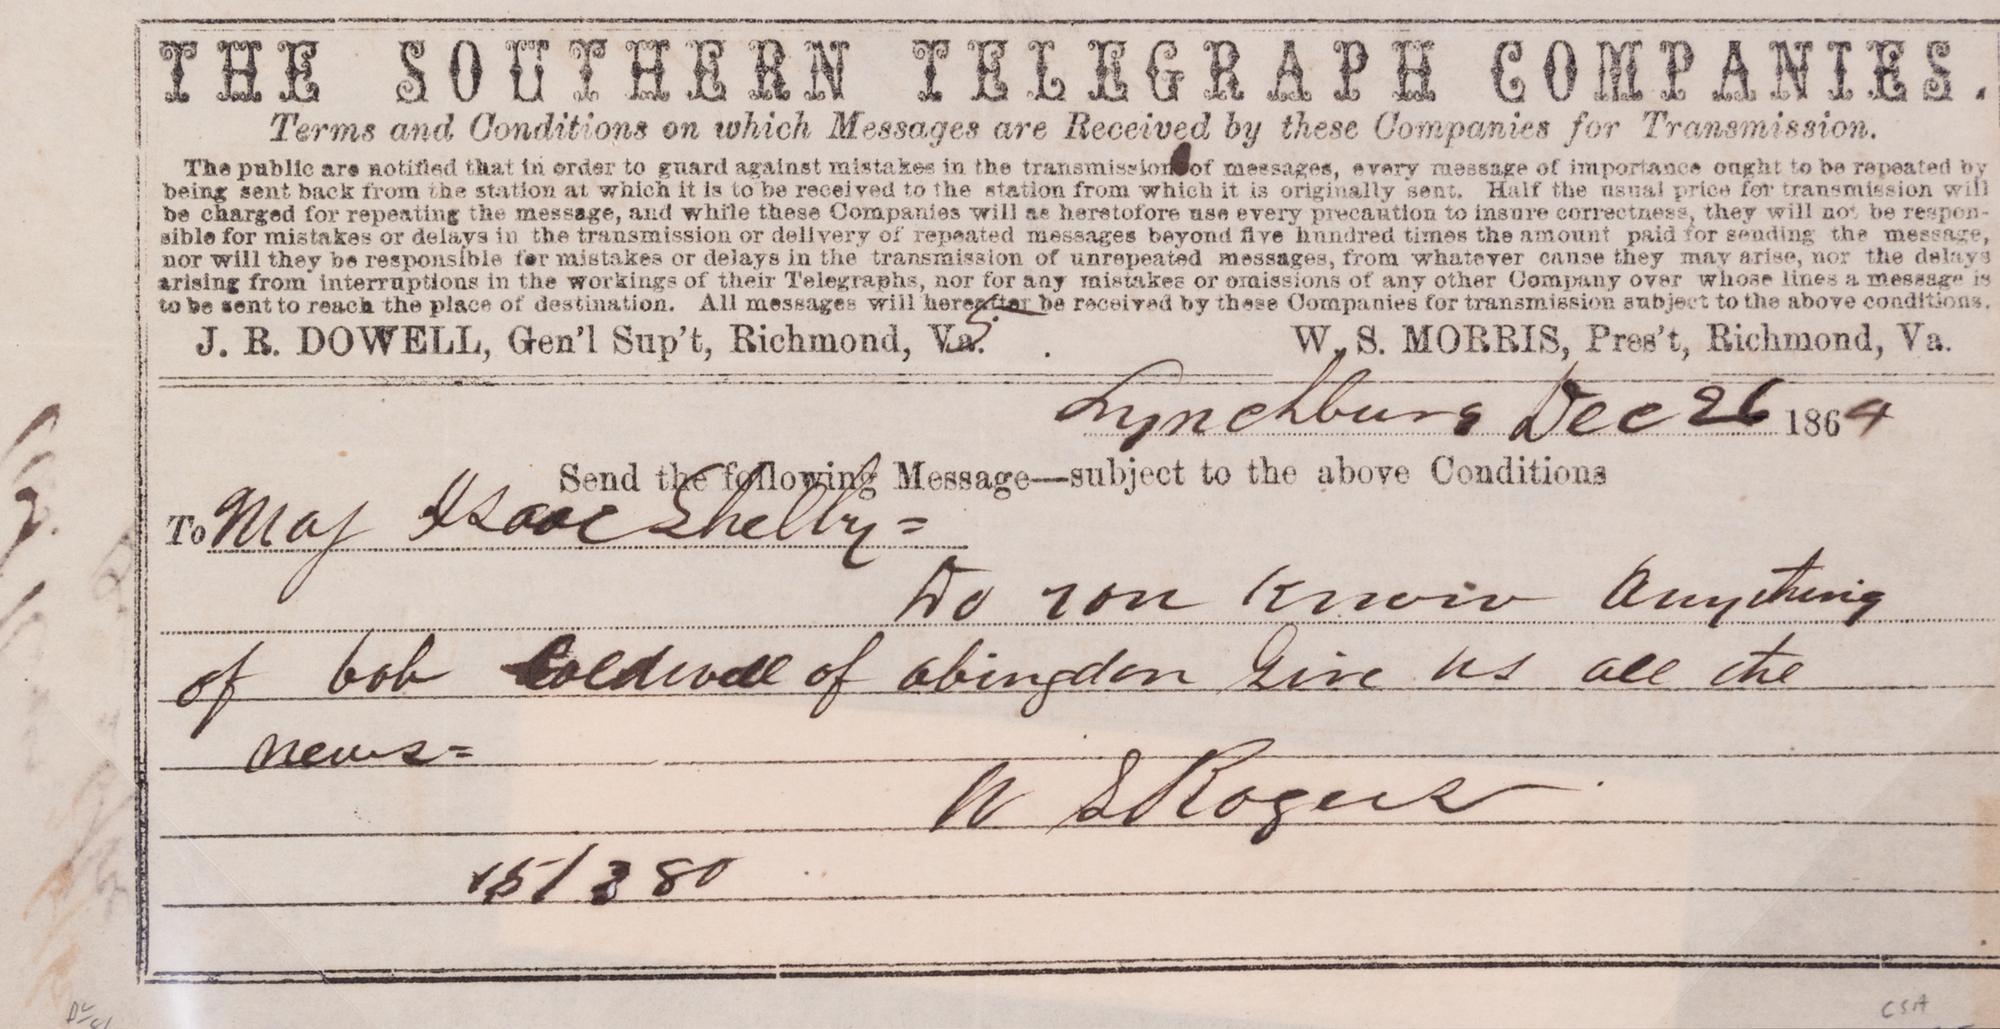 THE SOUTHERN TELEGRAPH COMPANIES.
Terms and Conditions on which Messages are Received by these Companies for Transmission.
The public are notified that in order to guard against mistakes in the transmission of messages, every message of importance ought to be repeated by
being sent back from the station at which it is to be received to the station from which it is originally sent. Half the usual price for transmission will
be charged for repeating the message, and while these Companies will as heretofore use every precaution to insure correctness, they will not be respon-
sible for mistakes or delays in the transmission or delivery of repeated messages beyond five hundred times the amount paid for sending the message,
nor will they be responsible for mistakes or delays in the transmission of unrepeated messages, from whatever cause they may arise, nor the delays
arising from interruptions in the workings of their Telegraphs, nor for any mistakes or omissions of any other Company over whose lines a message is
to be sent to reach the place of destination. All messages will hereafter be received by these Companies for transmission subject to the above conditions.
J. R. DOWELL, Gen'l Sup't, Richmond, Va. W. S. MORRIS, Pres't, Richmond, Va.
Lynchburg Dec 26 1864
Send the following Message—subject to the above Conditions
To Maj Isaac Shelby =
Do you know Anything
of bob Coldwell of abingdon Give us all the
news =
W S Rogers
15/3 80
CSA